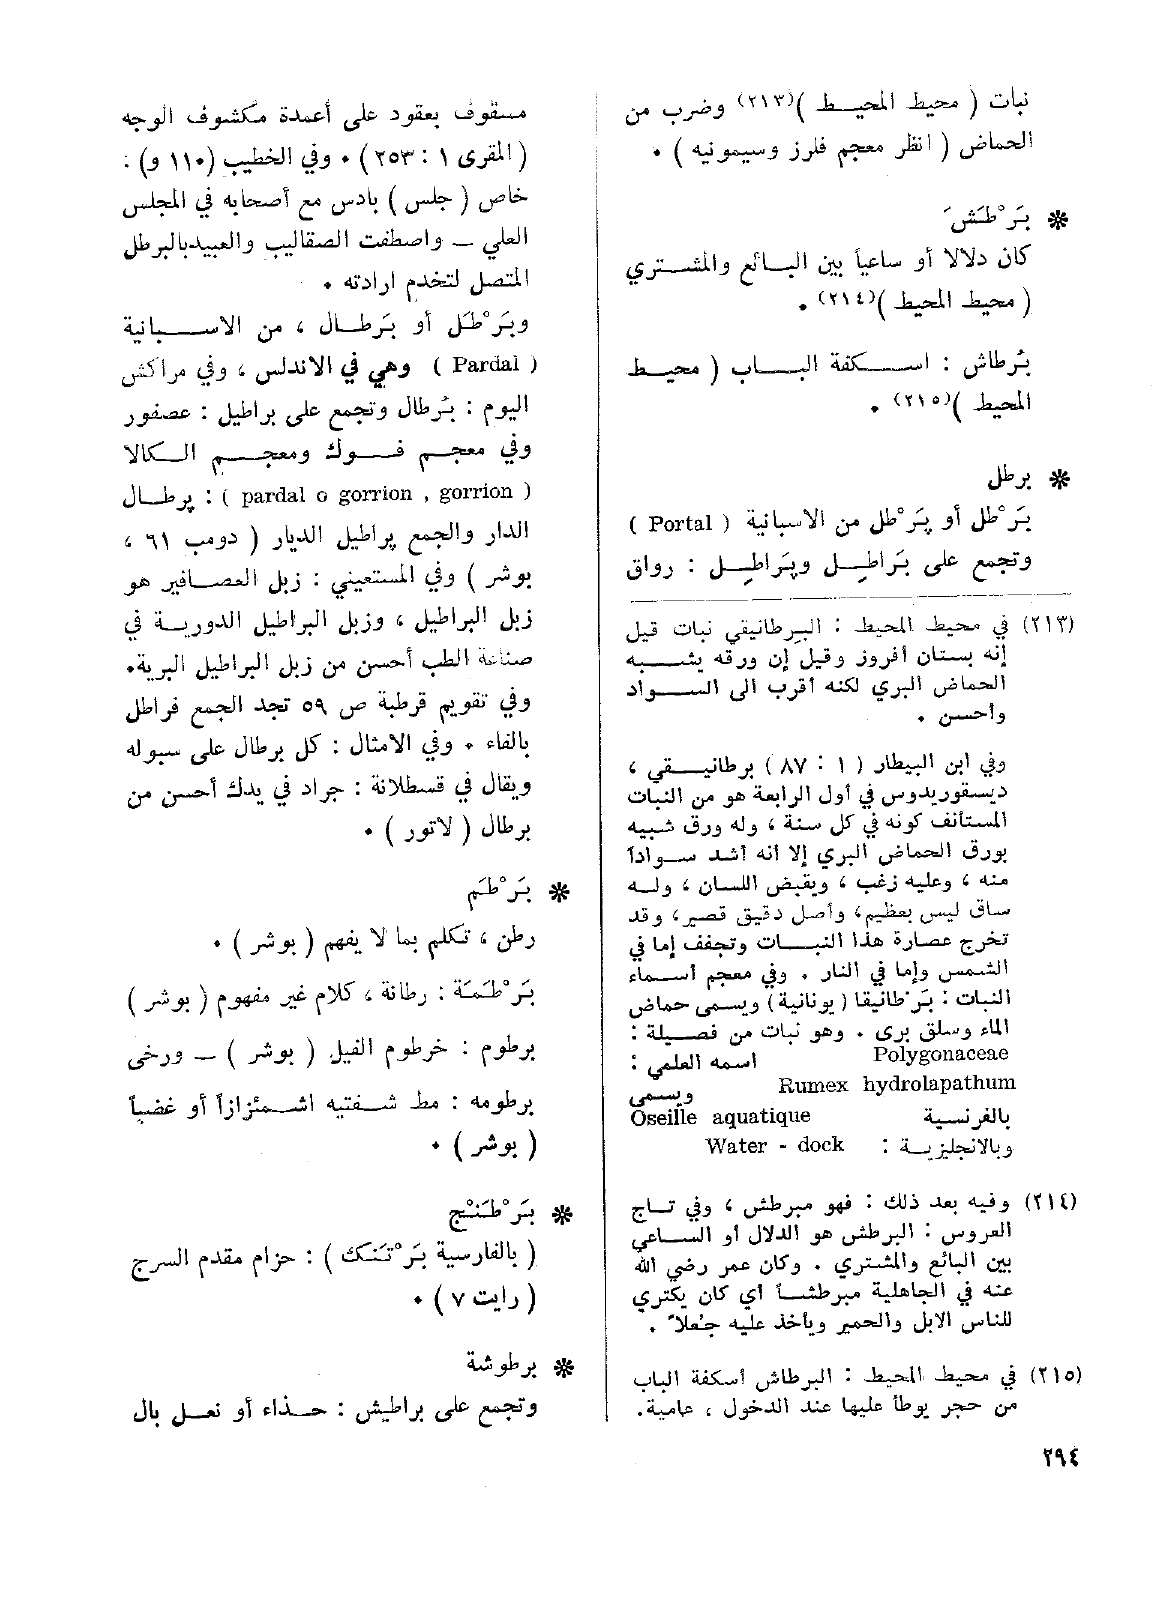 نبات ( محيط المحيط )(٢١٣) وضرب من
الحماض ( انظر معجم فلرز وسيمونيه ) ٠
❋ بَرْطَشَ
كان دلالا أو ساعياً بين البائع والمشتري
( محيط المحيط )(٢١٤) ٠
بُرطاش : اسكفة الباب ( محيط
المحيط )(٢١٥) ٠
❋ برطل
بَرْطل أو پَرْطل من الاسبانية ( Portal )
وتجمع على بَراطِل وپَراطِل : رواق
(٢١٣) في محيط المحيط : البرطانيقي نبات قيل
إنه بستان أفروز وقيل إن ورقه يشبه
الحماض البري لكنه أقرب الى السواد
وأحسن ٠
وفي ابن البيطار ( ١ : ٨٧ ) برطانيقي ،
ديسقوريدوس في أول الرابعة هو من النبات
المستأنف كونه في كل سنة ، وله ورق شبيه
بورق الحماض البري إلا أنه أشد سواداً
منه ، وعليه زغب ، ويقبض اللسان ، وله
ساق ليس بعظيم، وأصل دقيق قصير، وقد
تخرج عصارة هذا النبات وتجفف إما في
الشمس وإما في النار ٠ وفي معجم أسماء
النبات : بَرْطانيقا ( يونانية ) ويسمى حماض
الماء وسلق بري ٠ وهو نبات من فصيلة :
Polygonaceae اسمه العلمي :
Rumex hydrolapathum ويسمى
بالفرنسية Oseille aquatique
وبالانجليزية : Water - dock
(٢١٤) وفيه بعد ذلك : فهو مبرطش ، وفي تاج
العروس : البرطش هو الدلال أو الساعي
بين البائع والمشتري ٠ وكان عمر رضي الله
عنه في الجاهلية مبرطشاً أي كان يكتري
للناس الابل والحمير ويأخذ عليه جُعلاً ٠
(٢١٥) في محيط المحيط : البرطاش أسكفة الباب
من حجر يوطأ عليها عند الدخول ، عامية.
مسقوف بعقود على أعمدة مكشوف الوجه
( المقرى ١ : ٢٥٣ ) ٠ وفي الخطيب (١١٠ و) :
خاص ( جلس ) بادس مع أصحابه في المجلس
العلي ــ واصطفت الصقاليب والعبيد بالبرطل
المتصل لتخدم ارادته ٠
وبَرْطَل أو بَرطال ، من الاسبانية
( Pardal ) وهي في الاندلس ، وفي مراكش
اليوم : بُرطال وتجمع على براطيل : عصفور
وفي معجم فوك ومعجم الكالا
( pardal o gorrion , gorrion ) : پرطال
الدار والجمع پراطيل الديار ( دومب ٦١ ،
بوشر ) وفي المستعيني : زبل العصافير هو
زبل البراطيل ، وزبل البراطيل الدورية في
صناعة الطب أحسن من زبل البراطيل البرية٠
وفي تقويم قرطبة ص ٥٩ تجد الجمع فراطل
بالفاء ٠ وفي الامثال : كل برطال على سبوله
ويقال في قسطلانة : جراد في يدك أحسن من
برطال ( لاتور ) ٠
❋ بَرْطَم
رطن ، تكلم بما لا يفهم ( بوشر ) ٠
بَرْطَمَة : رطانة ، كلام غير مفهوم ( بوشر )
برطوم : خرطوم الفيل ( بوشر ) ــ ورخى
برطومه : مط شفتيه اشمئزازاً أو غضباً
( بوشر ) ٠
❋ بَرْطَنْج
( بالفارسية بَرْتَنك ) : حزام مقدم السرج
( رايت ٧ ) ٠
❋ برطوشة
وتجمع على براطيش : حذاء أو نعل بال
٢٩٤